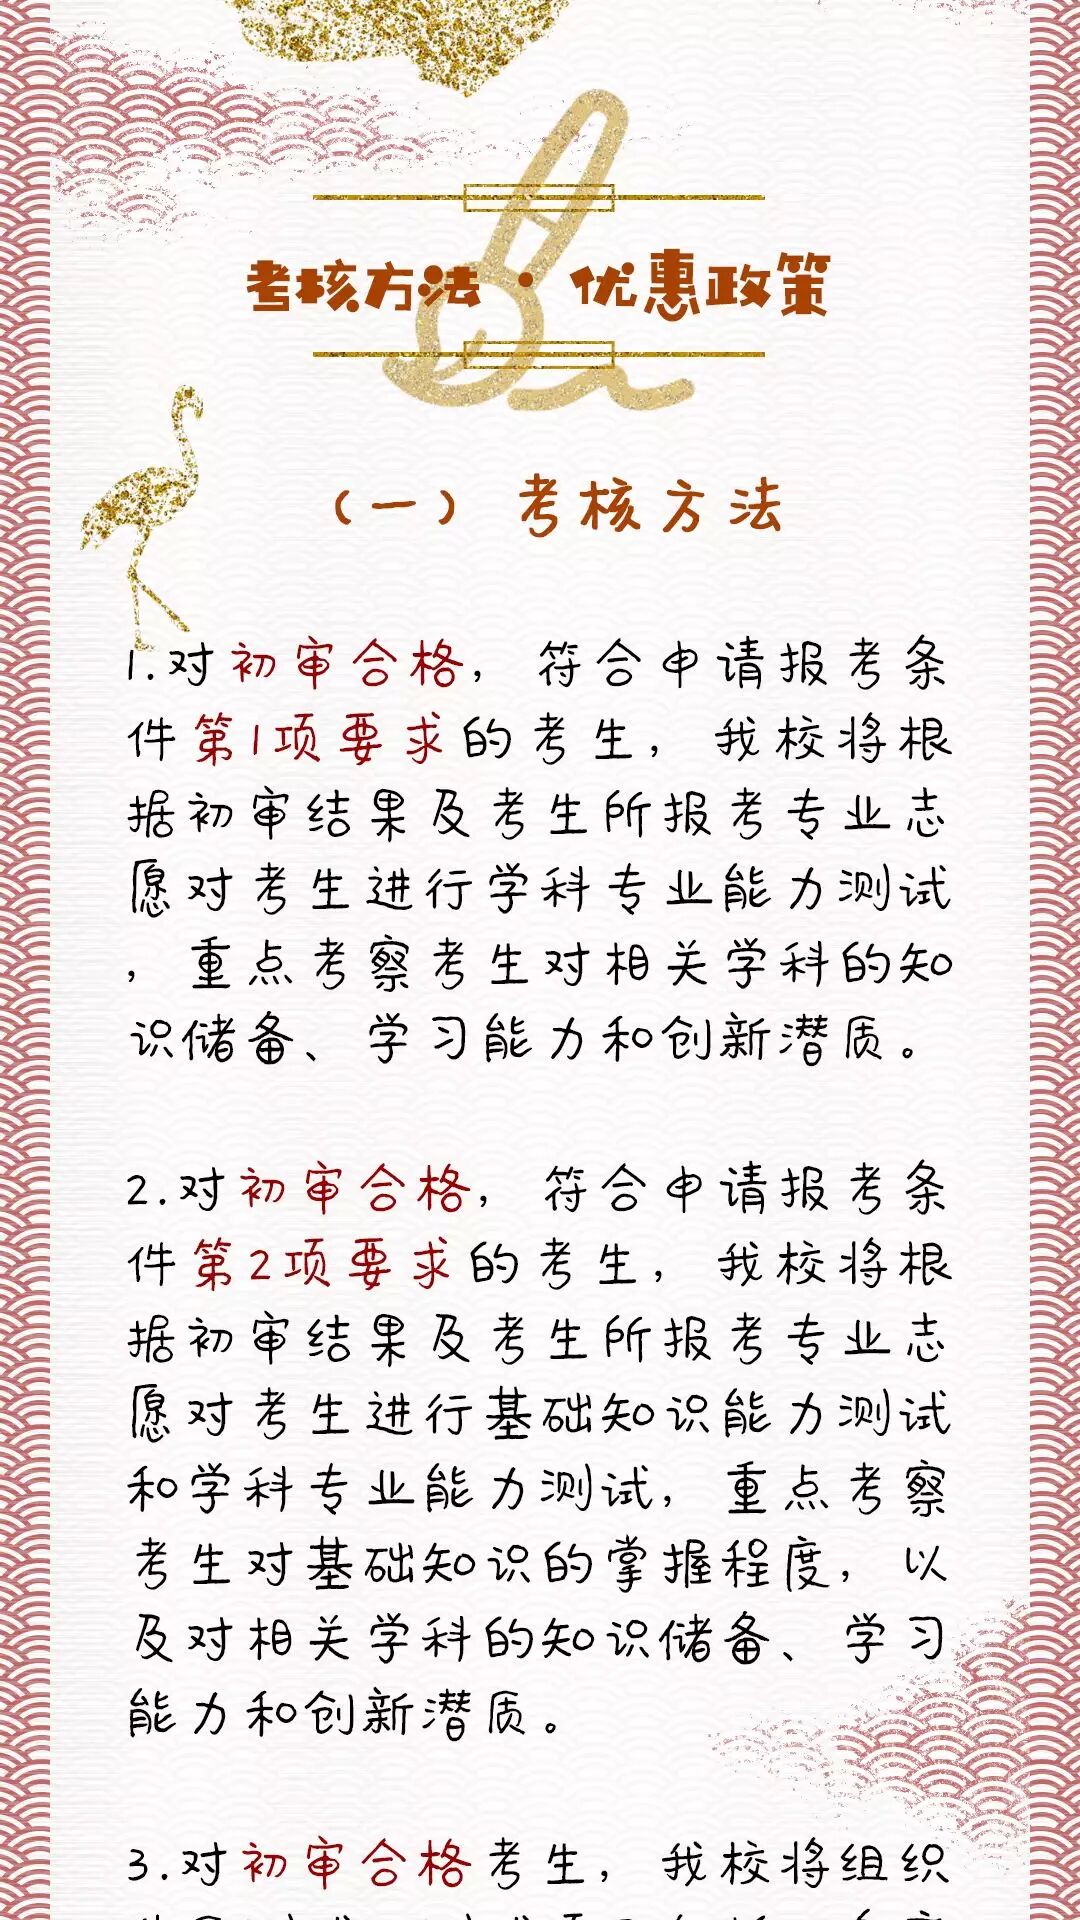 考核方法·优惠政策
（一）考核方法
1.对初审合格，符合申请报考条
件第1项要求的考生，我校将根
据初审结果及考生所报考专业志
愿对考生进行学科专业能力测试
，重点考察考生对相关学科的知
识储备、学习能力和创新潜质。
2.对初审合格，符合申请报考条
件第2项要求的考生，我校将根
据初审结果及考生所报考专业志
愿对考生进行基础知识能力测试
和学科专业能力测试，重点考察
考生对基础知识的掌握程度，以
及对相关学科的知识储备、学习
能力和创新潜质。
3.对初审合格考生，我校将组织